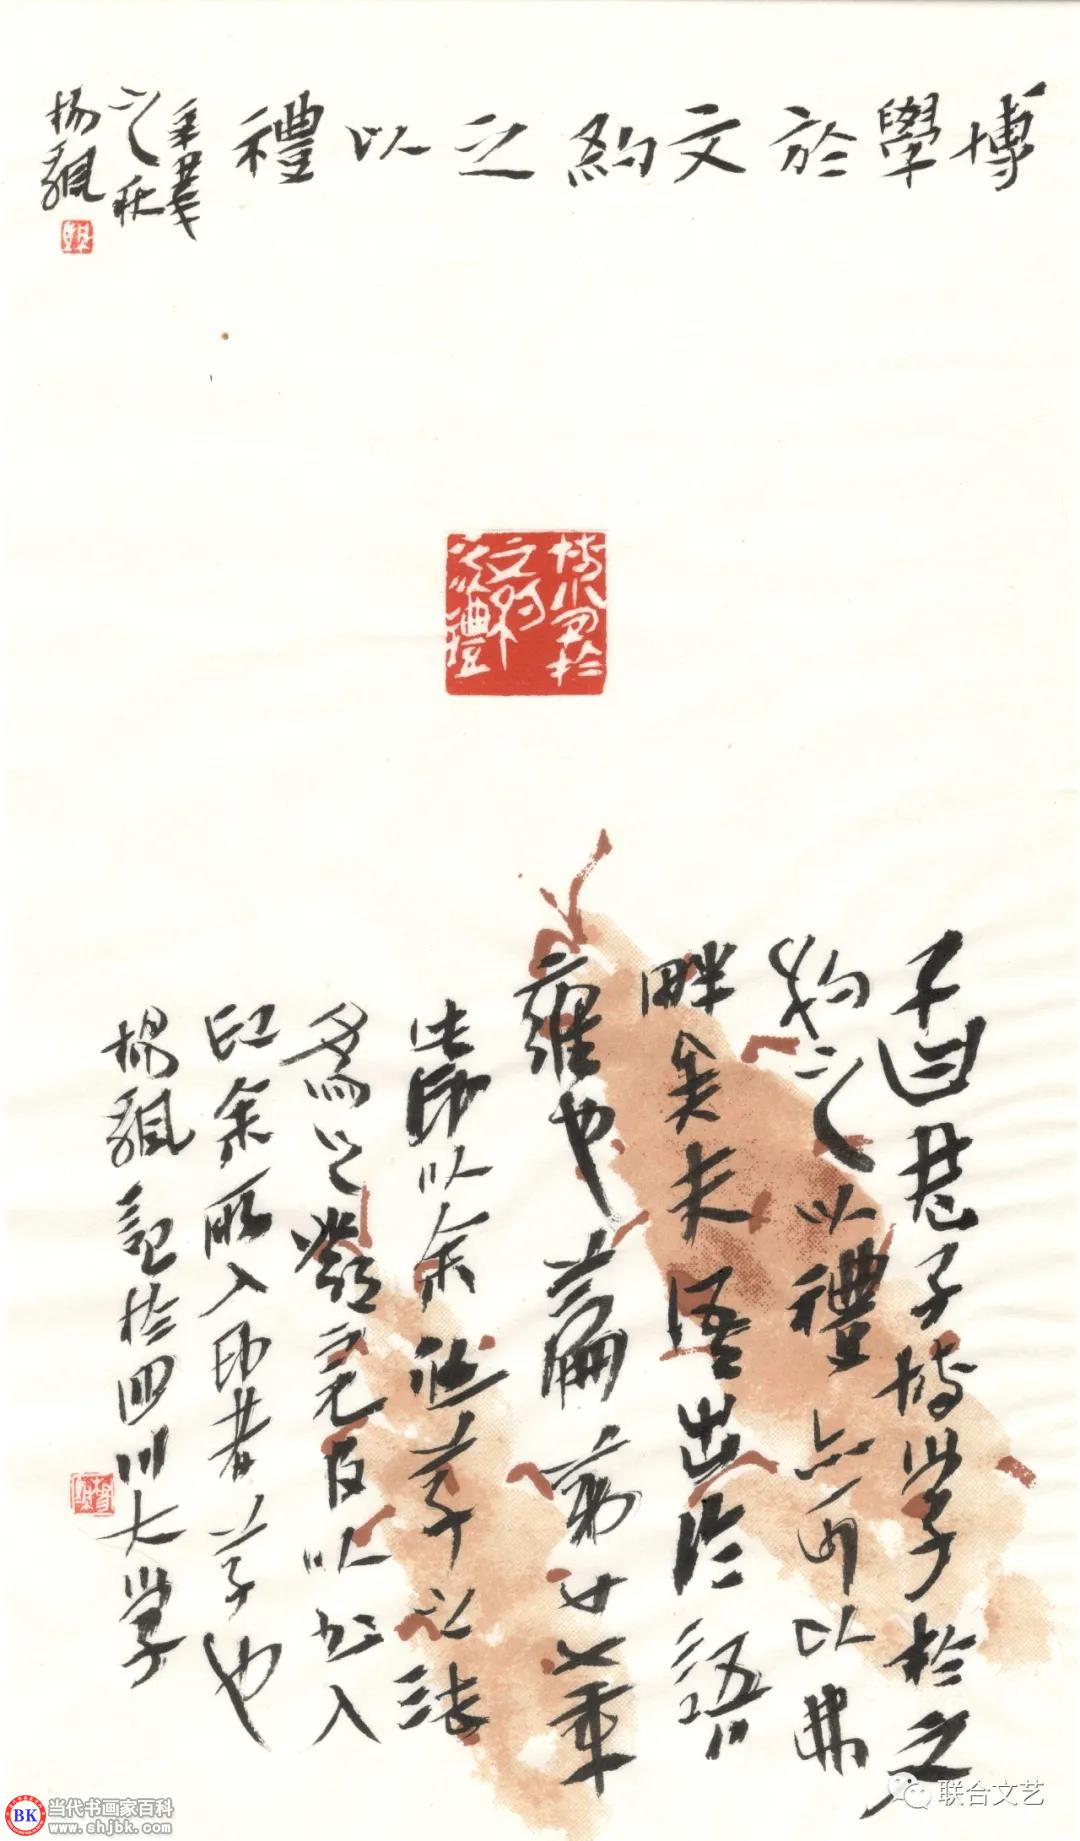 博學於文約之以禮
辛丑
之秋
楊
博學於
文約
之以禮
子曰君子博學於文
約之以禮亦可以弗
畔矣夫語出論語
雍也篇第廿七章
此印以余草之法
為之以入
印余所入印者草也
楊記於四川大學
联合文艺
BK
当代书画家百科
www.shjbk.com